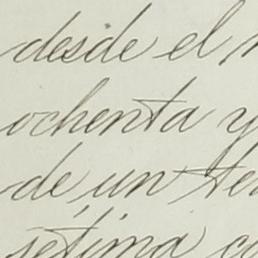 desde el
ochenta y
de un
séptima